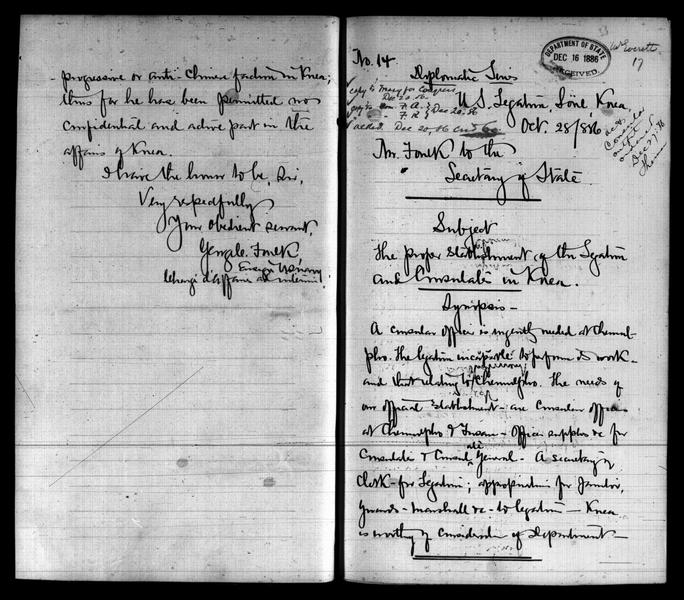 progressive or anti-Chinese faction in Korea;
thus far he has been permitted no
confidential and active part in the
affairs of Korea.
I have the honor to be, Sir,
Very respectfully
Your obedient servant,
George C. Foulk,
Ensign U.S. Navy
Chargé d'Affaires ad interim
No. 14
Diplomatic Series
DEPARTMENT OF STATE
DEC 16 1886
RECEIVED.
Mr Everett
17
copy to Treasy for Congress
Dec 20. 86
Dec 20. 86
ackd. Dec 20, 86
U.S. Legation, Söul, Korea,
Oct. 28/886
Consular
Dec 27. 86
Mr. Foulk to the
Secretary of State
Subject
The proper Establishment of the Legation
and Consulates in Korea.
Synopsis—
A consular officer is urgently needed at Chemul-
pho. The Legation incapable to perform its work—
and that relating to Chemulpho. The needs of
our official Establishment—are Consular officers
at Chemulpho & Fusan—Office supplies &c for
Consulates & Consulate General—A secretary or
Clerk—for Legation; appropriation for Janitor,
Guards—Marshall &c. to legation—Korea
is worthy of consideration of Department—